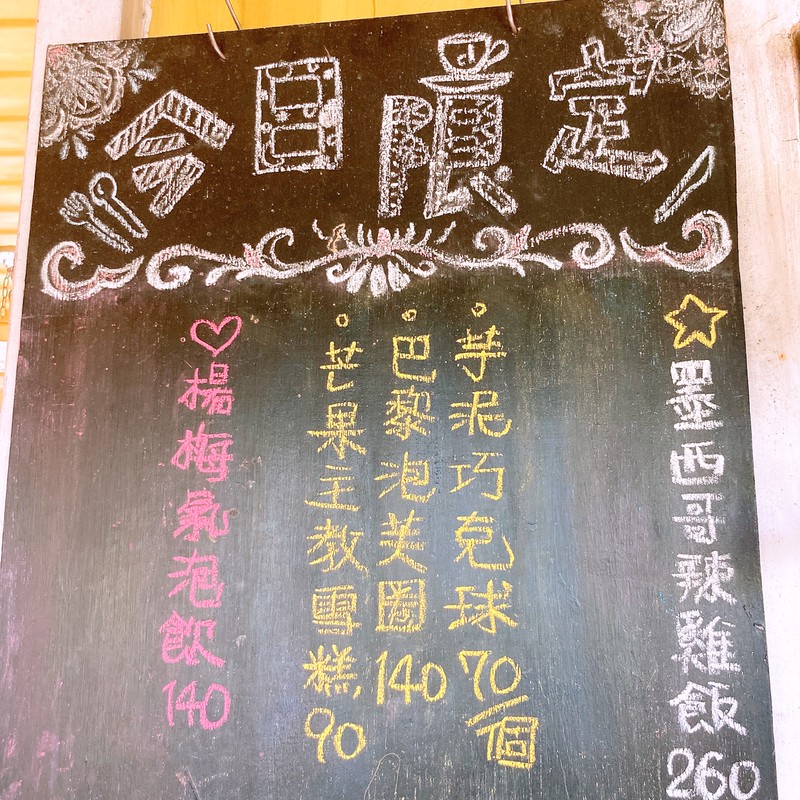 今日限定
墨西哥辣雞飯260
芋泥巧克球70/個
巴黎泡芙圈140
芒果主教雪糕90
楊梅氣泡飲140